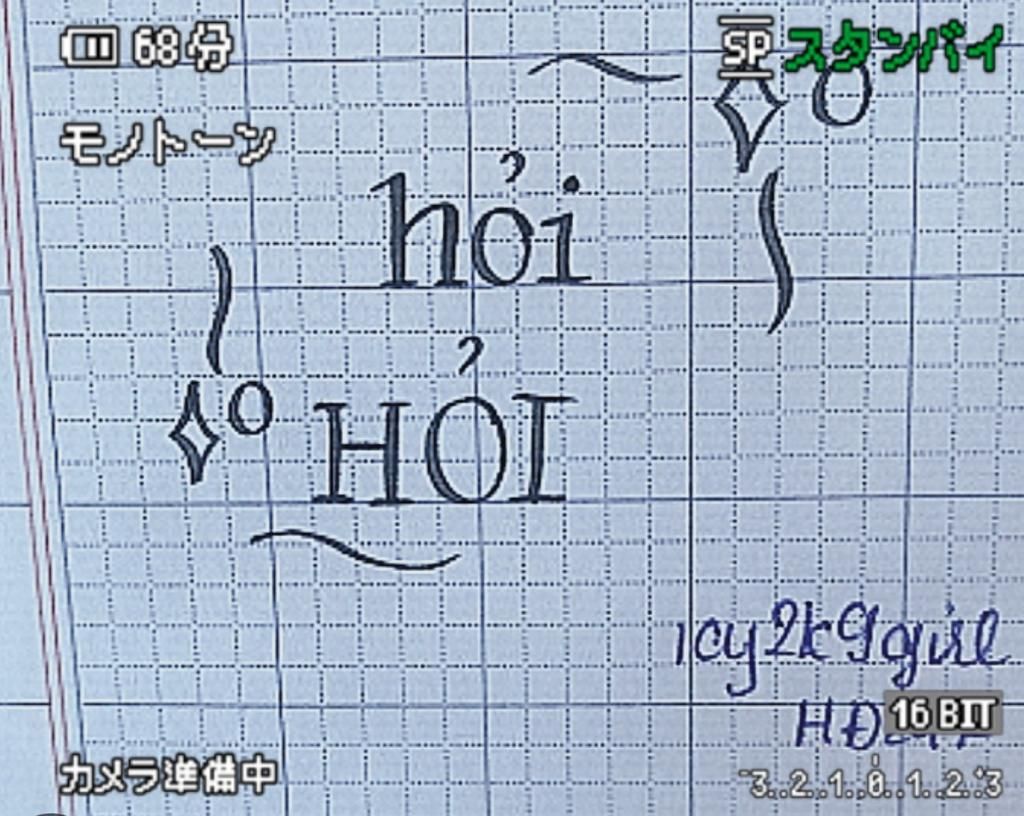 68分
SP スタンバイ
モノトーン
hỏi
HỎI
icy2k9girl
16 BIT
カメラ準備中
-3..2..1..0..1..2..+3